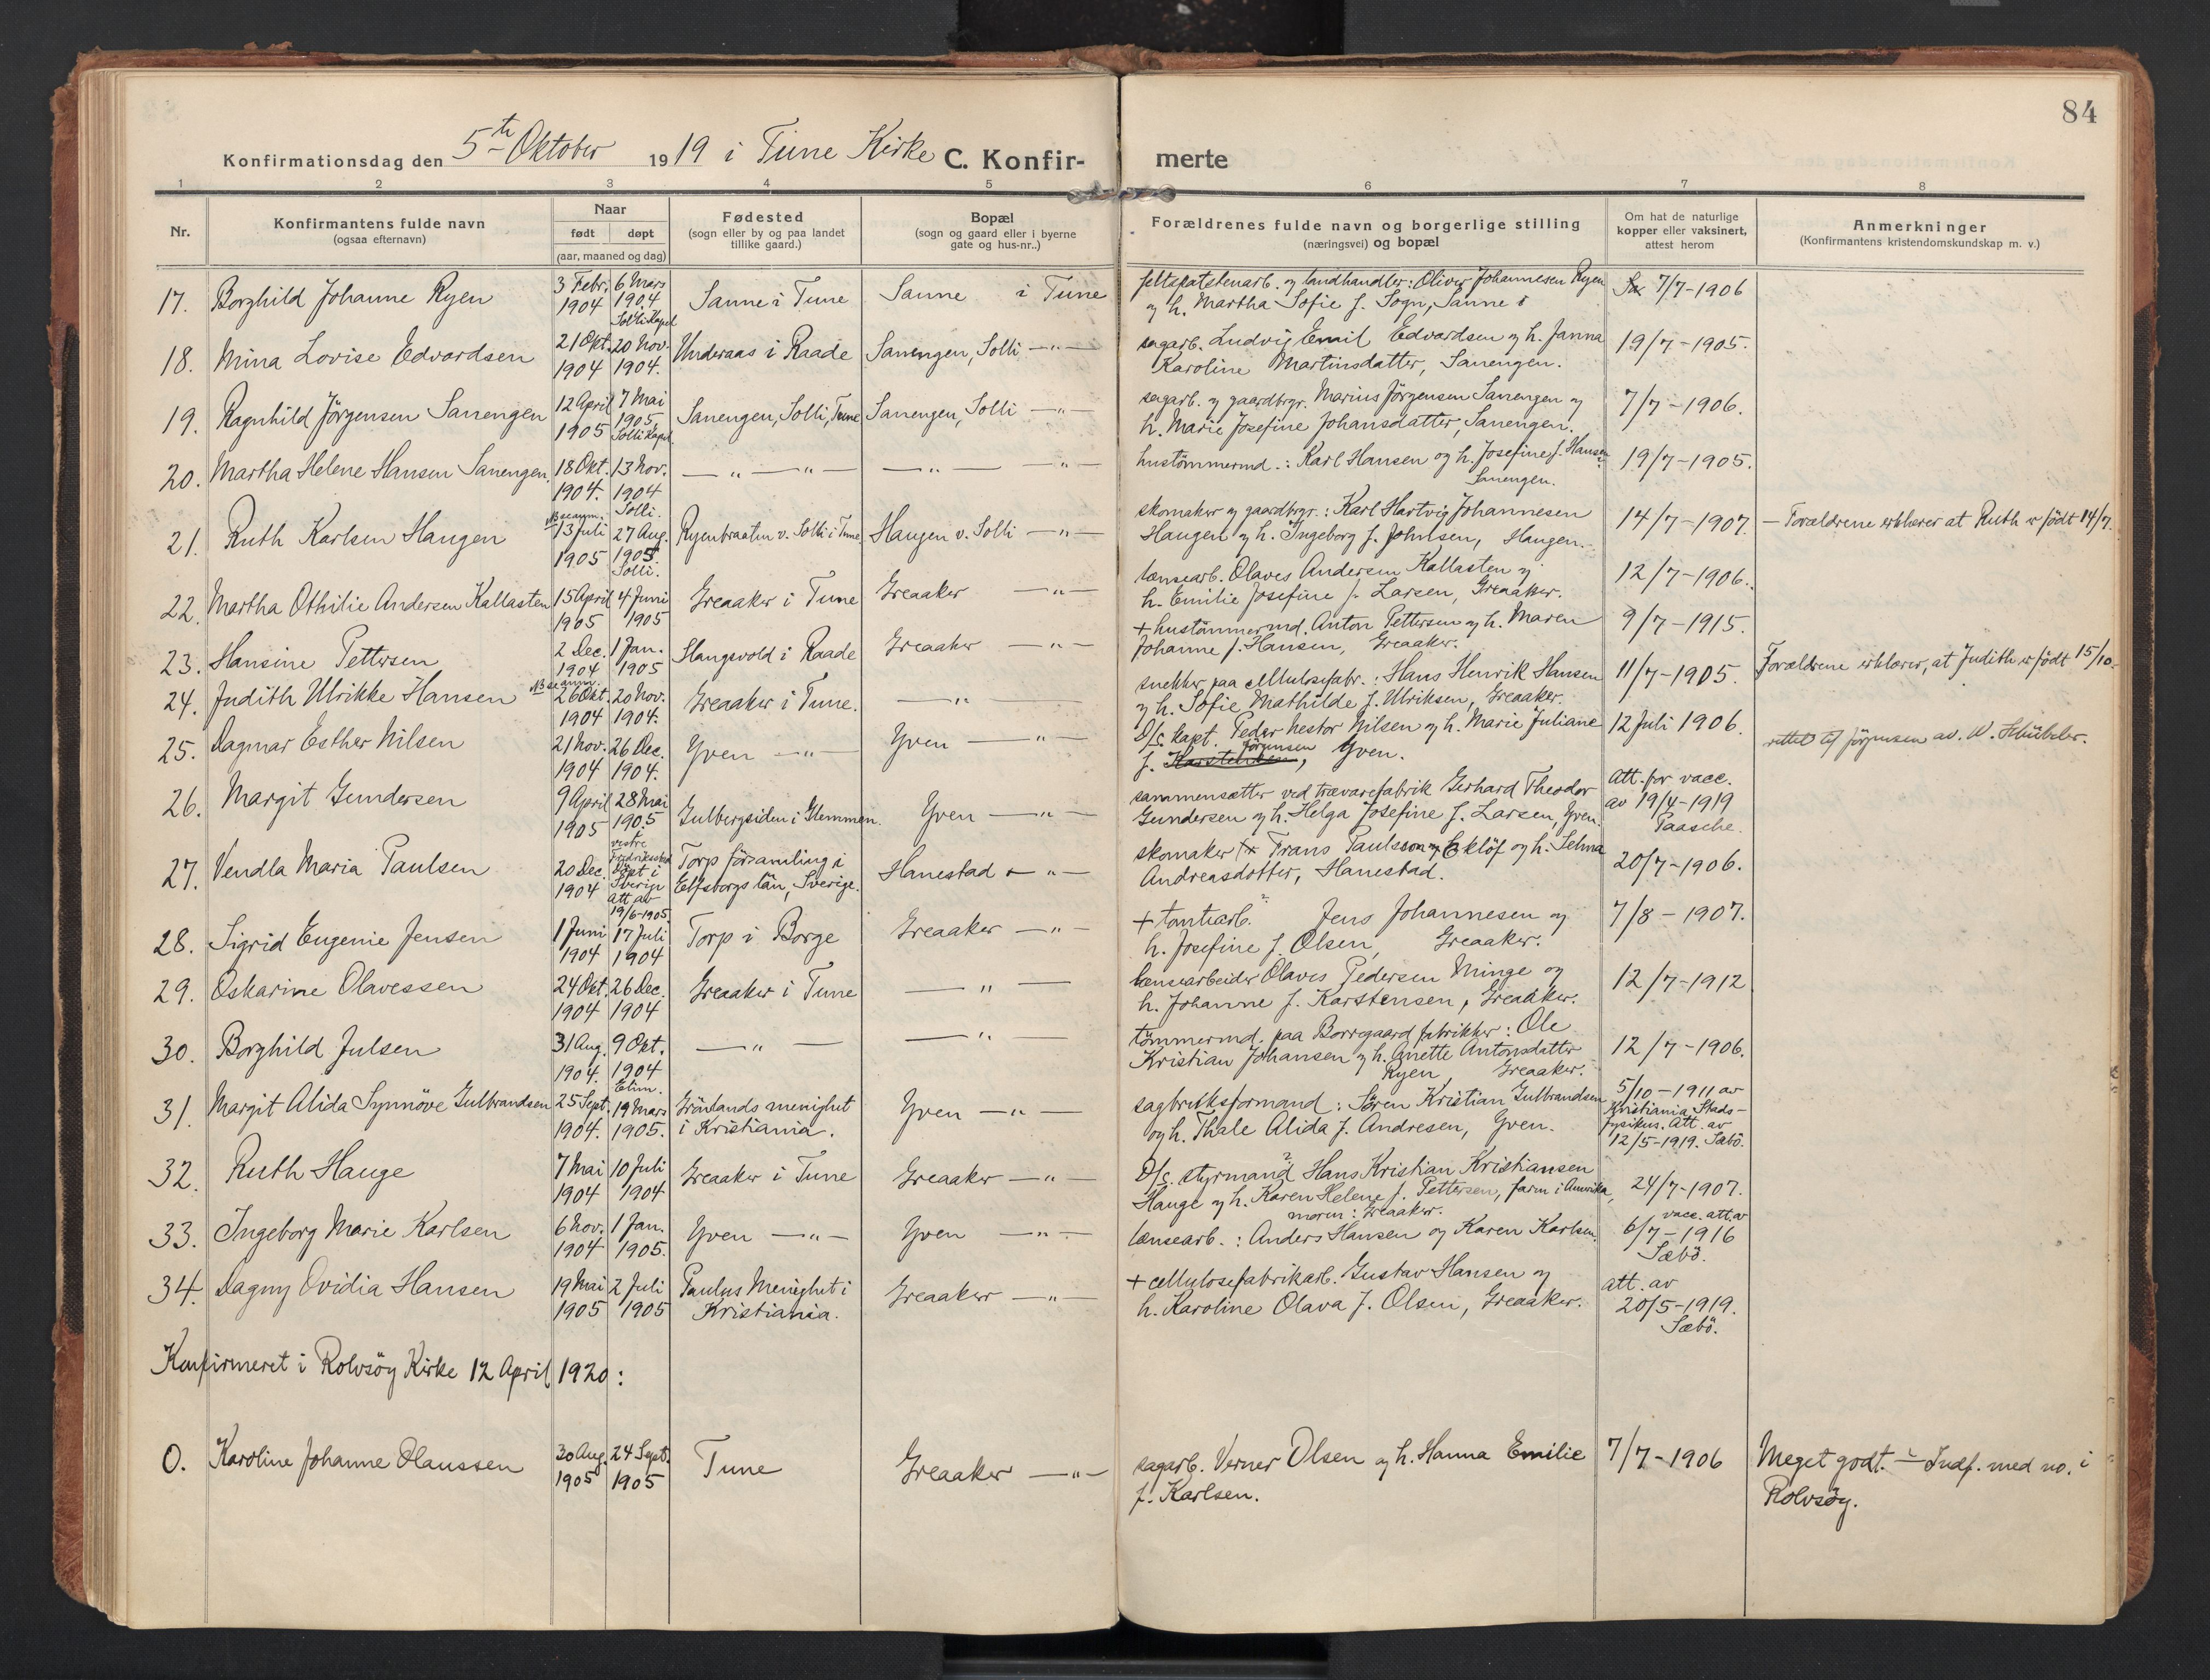 84
Konfirmationsdag den 5te Oktober 1919 i Tune Kirke C. Konfir- merte
1 2 3 4 5 6 7 8
Nr.
Konfirmantens fulde navn
(ogsaa efternavn)
Naar
født døpt
(aar, maaned og dag)
Fødested
(sogn eller by og paa landet
tillike gaard.)
Bopæl
(sogn og gaard eller i byerne
gate og hus-nr..)
Forældrenes fulde navn og borgerlige stilling
(næringsvei) og bopæl
Om hat de naturlige
kopper eller vaksinert,
attest herom
Anmerkninger
(Konfirmantens kristendomskundskap m. v.)
17. Borghild Johanne Ryen
3 Febr. 1904
6 Mars 1904 Solli Kapel
Sanne i Tune
Sanne i Tune
feltspatstenarb. og landhandler: Oliver Johannesen Ryen
og h. Martha Sofie f. Sogn, Sanne
7/7-1906
18. Mina Lovise Edvardsen
21 Okt. 1904
20 Nov. 1904.
Underaas i Raade
Sanengen, Solli —"—
sagarb. Ludvig Emil Edvardsen og h. Janna
Karoline Martinsdatter, Sanengen.
19/7-1905.
19. Ragnhild Jörgensen Sanengen
12 April 1905
7 Mai 1905, Solli Kapel.
Sanengen, Solli, Tune
Sanengen, Solli —"—
sagarb. og gaardbrgr. Marius Jörgensen Sanengen og
h. Marie Josefine Johansdatter, Sanengen.
7/7-1906.
20. Martha Helene Hansen Sanengen.
18 Okt. 1904.
13 Nov. 1904 Solli.
—"— —"—
—"— —"—
hustömmermd.: Karl Hansen og h. Josefine f. Hansen
Sanengen.
19/7-1905.
21. Ruth Karlsen Haugen
NB se anm. 13 Juli 1905
27 Aug. 1905 Solli.
Ryenbraaten v. Solli i Tune
Haugen v. Solli —"—
skomaker og gaardbrgr.: Karl Hartvig Johannesen
Haugen og h. Ingeborg f. Johnsen, Haugen.
14/7-1907.
— Forældrene erklærer at Ruth er födt 14/7.
22. Martha Othilie Andersen Kallasten
15 April 1905
4 Juni 1905
Greaaker i Tune
Greaaker —"—
lænsearb. Olaves Andersen Kallasten og
h. Emilie Josefine f. Larsen, Greaaker.
12/7-1906.
23. Hansine Pettersen
2 Dec. 1904
1 Jan. 1905
Haugsvold i Raade
Greaaker —"—
+ hustömmermd. Anton Pettersen og h. Maren
Johanne f. Hansen, Greaaker.
9/7-1915.
24. Judith Ulrikke Hansen
NB se anm. 26 Okt. 1904
20 Nov. 1904.
Greaaker i Tune.
—"—
snekker paa cellulosefabr.: Hans Henrik Hansen
og h. Sofie Mathilde f. Ulriksen, Greaaker.
11/7-1905.
Forældrene erklærer, at Judith er födt 15/10.
25. Dagmar Esther Nilsen
21 Nov. 1904
26 Dec. 1904.
Yven —"—
Yven —"—
D/S. kapt. Peder Nestor Nilsen og h. Marie Juliane
f. Karstensen Jörgensen, Yven.
12 Juli 1906.
rettet til Jörgensen av. W. Schübeler.
26. Margit Gundersen
9 April 1905
28 Mai 1905 vestre Fredriksstad
Gulbergsiden i Glemmen.
Yven —"—
sammensætter ved trævarefabrik Gerhard Theodor
Gundersen og h. Helga Josefine f. Larsen, Yven.
Att. for vacc.
av 19/4-1919
Paasche.
27. Vendla Maria Paulsen
20 Dec. 1904
Döpt i Sverige att av 19/6-1905.
Torp församling i
Elfsborgs län, Sverige.
Hanestad —"—
skomaker Frans Paulsson Eklöf og h. Selma
Andreasdotter, Hanestad.
20/7-1906.
28. Sigrid Eugenie Jensen
1 Juni 1904
17 Juli 1904
Torp i Borge
Greaaker —"—
+ tomtearb.? Jens Johannesen og
h. Josefine f. Olsen, Greaaker.
7/8-1907.
29. Oskarine Olavessen
24 Okt. 1904
26 Dec. 1904
Greaaker i Tune
—"—
lænsearbeider Olaves Pedersen Minge og
h. Johanne f. Karstensen, Greaaker.
12/7-1912
30. Borghild Julsen
31 Aug. 1904.
9 Okt. 1904 Elim.
—"—
—"—
tömmermd. paa Borregaard fabrikker: Ole
Kristian Johansen og h. Anette Antonsdatter
Ryen Greaaker.
12/7-1906.
31. Margit Alida Synnöve Gulbrandsen
25 Sept. 1904.
19 Mars 1905.
Grönlands menighet
i Kristiania.
Yven —"—
sagbruksformand: Sören Kristian Gulbrandsen
og h. Thale Alida f. Andresen, Yven.
5/10-1911 av
Kristiania Stads-
fysikus. Att. av
12/5-1919. Sæbö.
32. Ruth Hauge
7 Mai 1904
10 Juli 1904
Greaaker i Tune
Greaaker —"—
D/S. styrmand? Hans Kristian Kristiansen
Hauge og h. Karen Helene f. Pettersen, faren i Amerika,
moren: Greaaker.
24/7-1907.
33. Ingeborg Marie Karlsen
6 Nov. 1904
1 Jan. 1905.
Yven —"—
Yven —"—
lænsearb.: Anders Hansen og Karen Karlsen.
vacc. att. av
6/7-1916
Sæbö.
34. Dagny Ovidia Hansen
19 Mai 1905
2 Juli 1905
Paulus Menighet i
Kristiania.
Greaaker —"—
+ cellulosefabrikarb. Gustav Hansen og
h. Karoline Olava f. Olsen, Greaaker.
att. av
20/5-1919.
Sæbö.
Konfirmeret i Rolvsöy Kirke 12 April 1920:
0. Karoline Johanne Olaussen
30 Aug. 1905
24 Sept. 1905
Tune
Greaaker —"—
sagarb. Verner Olsen og h. Hanna Emilie
f. Karlsen.
7/7-1906
Meget godt. — Indf. med no. i
Rolvsöy.